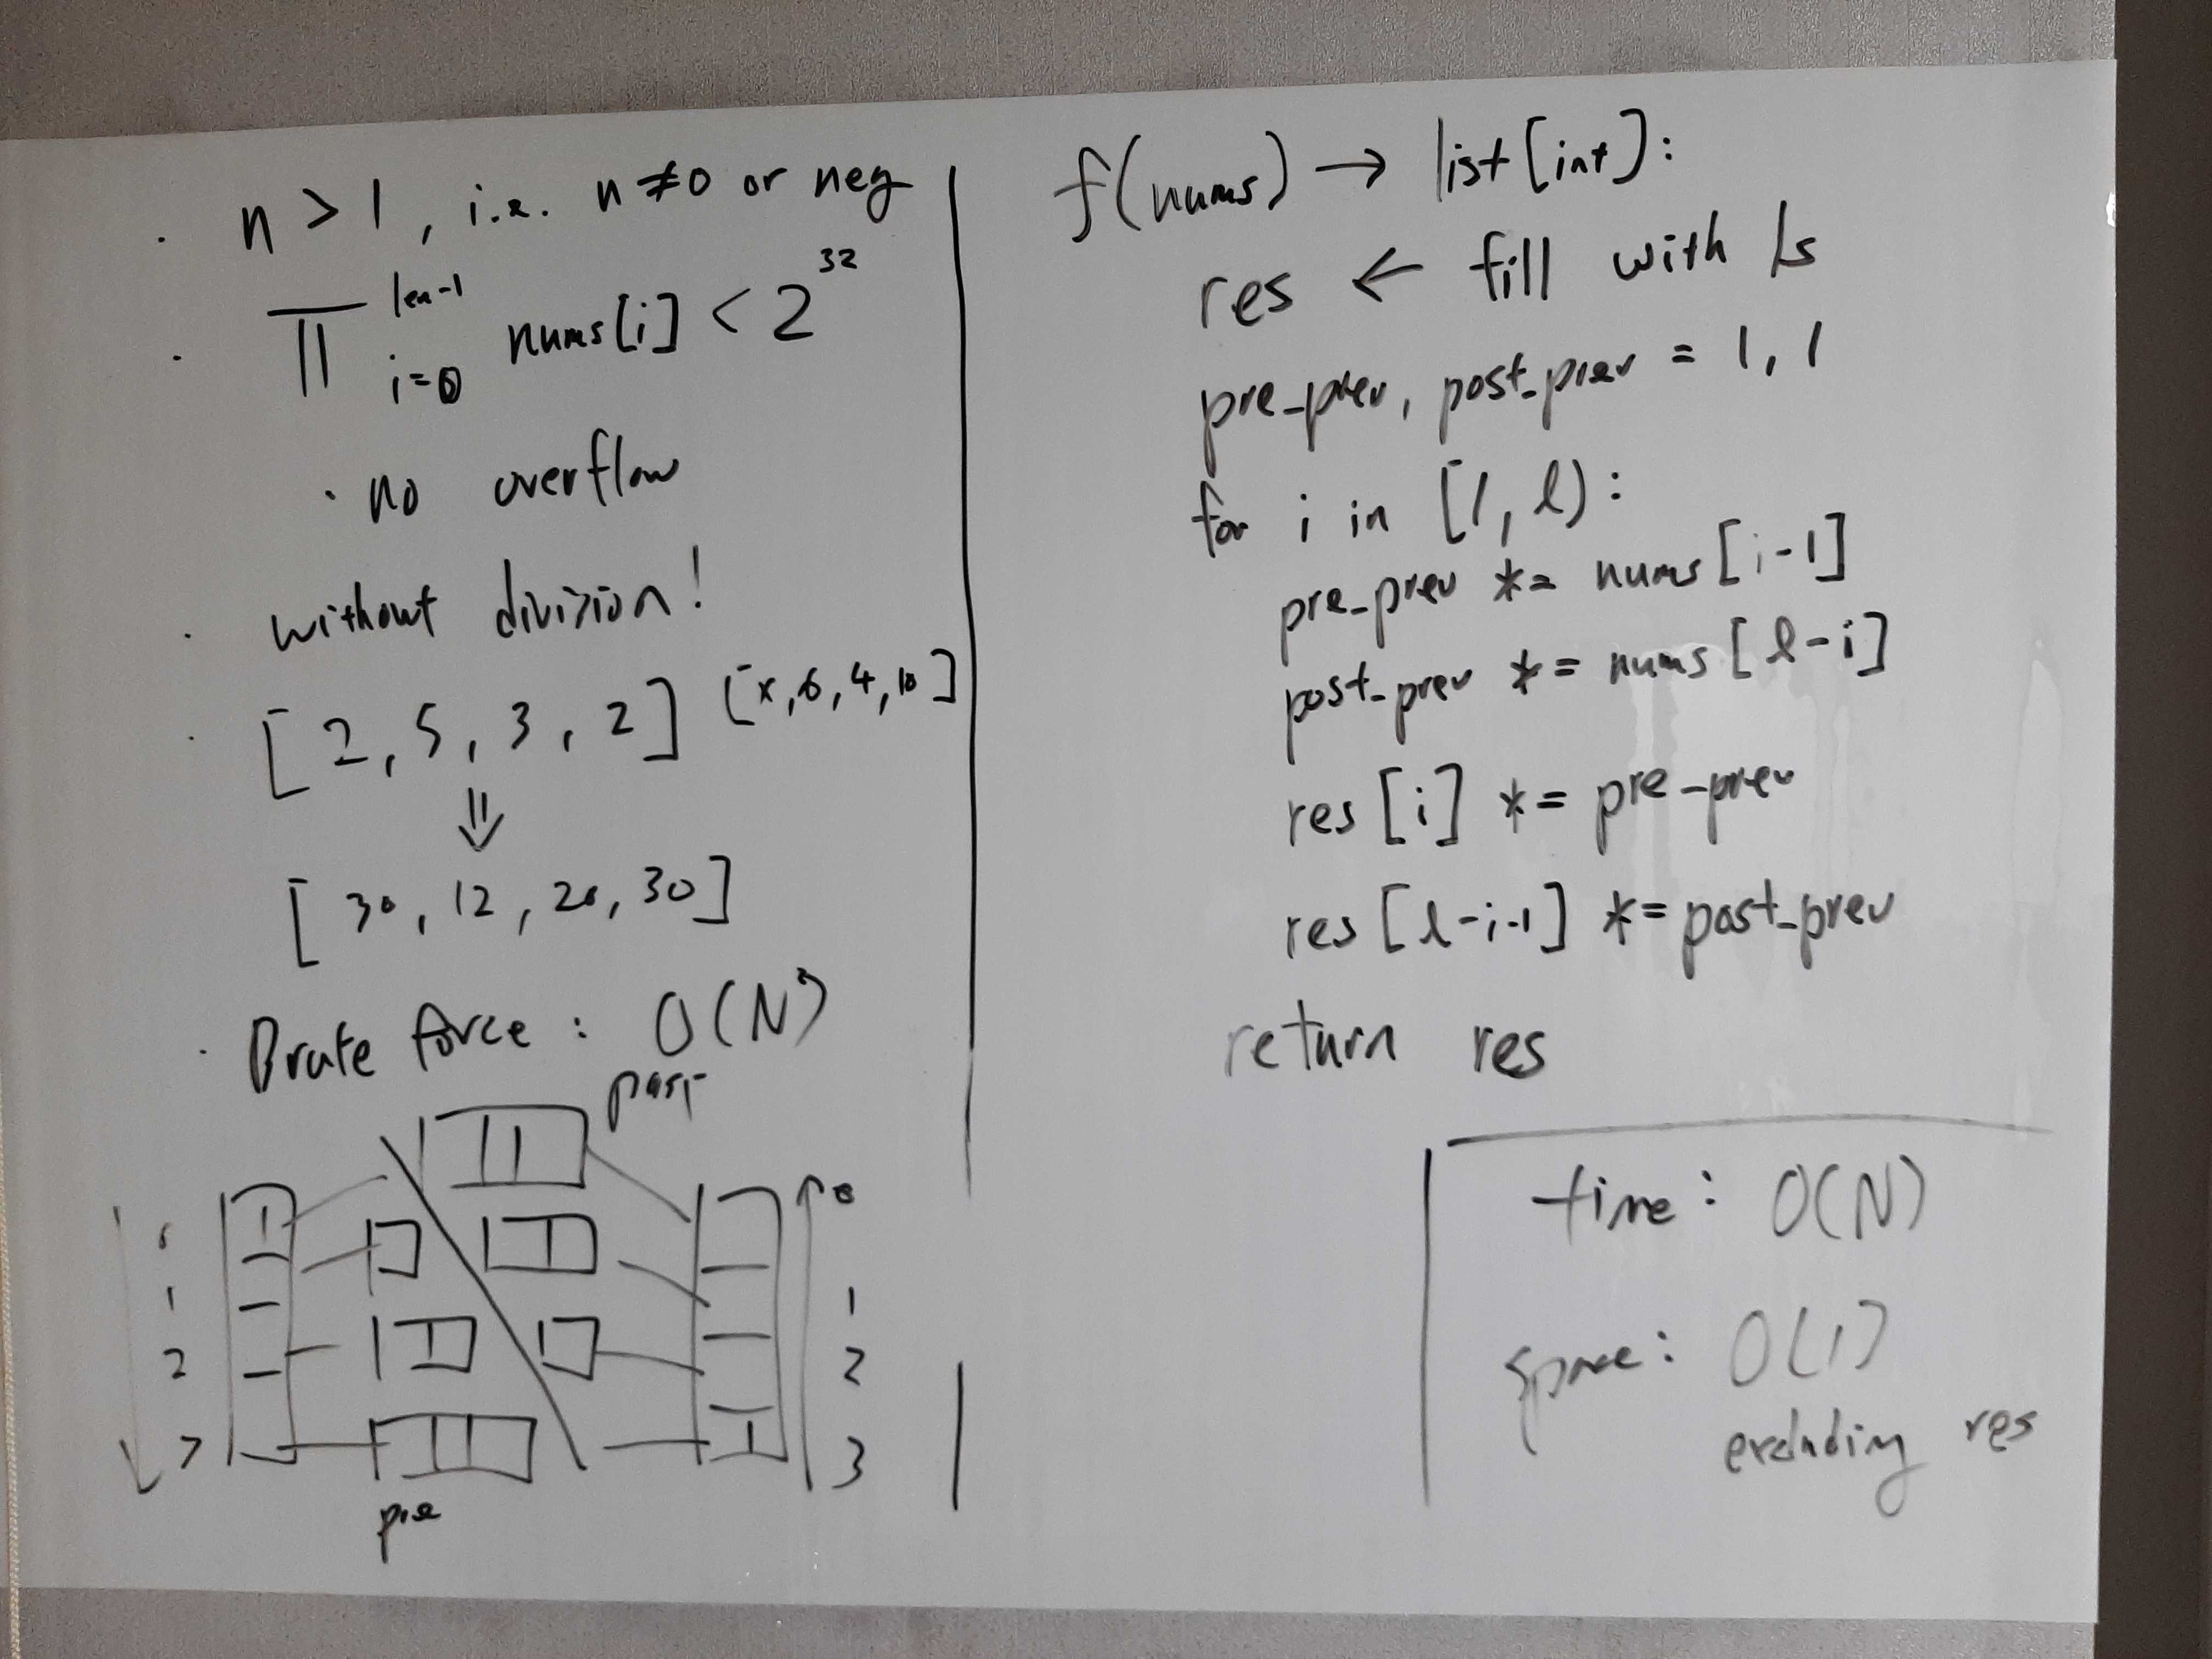 · n > 1, i.e. n ≠ 0 or neg
· ∏ len-1 i=0 nums[i] < 2^32
· no overflow
· without division!
· [2, 5, 3, 2] [x, 6, 4, 10]
⇓
[30, 12, 20, 30]
· Brute force: O(N²)
post
0
1
2
3
pre
0
1
2
3
f(nums) → list[int]:
res ← fill with 1s
pre_prev, post_prev = 1, 1
for i in [1, l):
pre_prev *= nums[i-1]
post_prev *= nums[l-i]
res[i] *= pre-prev
res[l-i-1] *= post_prev
return res
time: O(N)
space: O(1)
excluding res